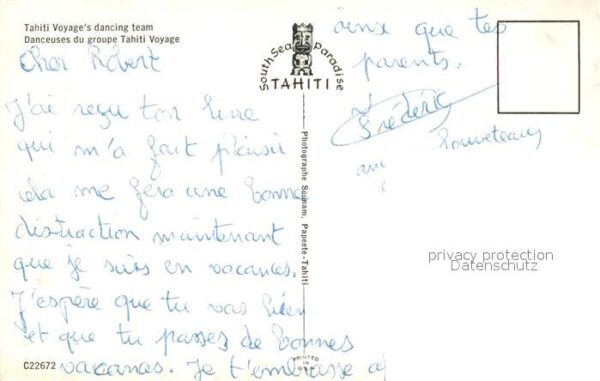 Tahiti Voyage's dancing team
Danceuses du groupe Tahiti Voyage
Cher Robert
J'ai reçu ton livre
qui m'a fait plaisir
cela me fera une bonne
distraction maintenant
que je suis en vacances.
J'espère que tu vas bien
et que tu passes de bonnes
vacances. Je t'embrasse
C22672
South Sea Paradise
TAHITI
Photographe Sounam, Papeete-Tahiti
PRINTED IN
ainsi que tes
parents.
Frédéric
privacy protection
Datenschutz